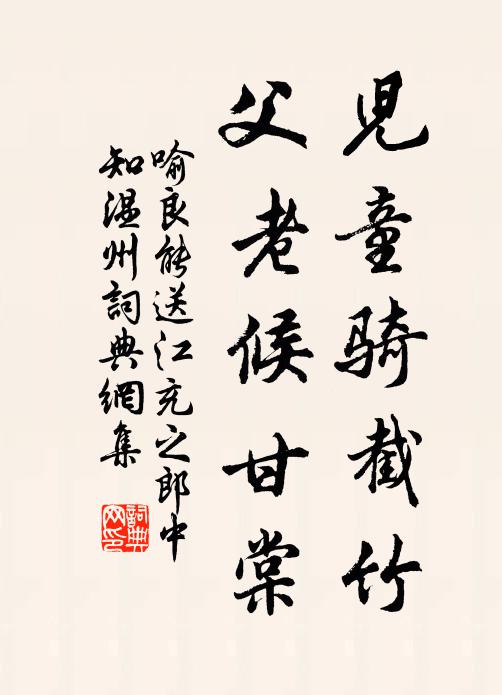 兒童騎截竹
父老候甘棠
喻良能送江充之郎中
知溫州詞典網集
詞典
网印